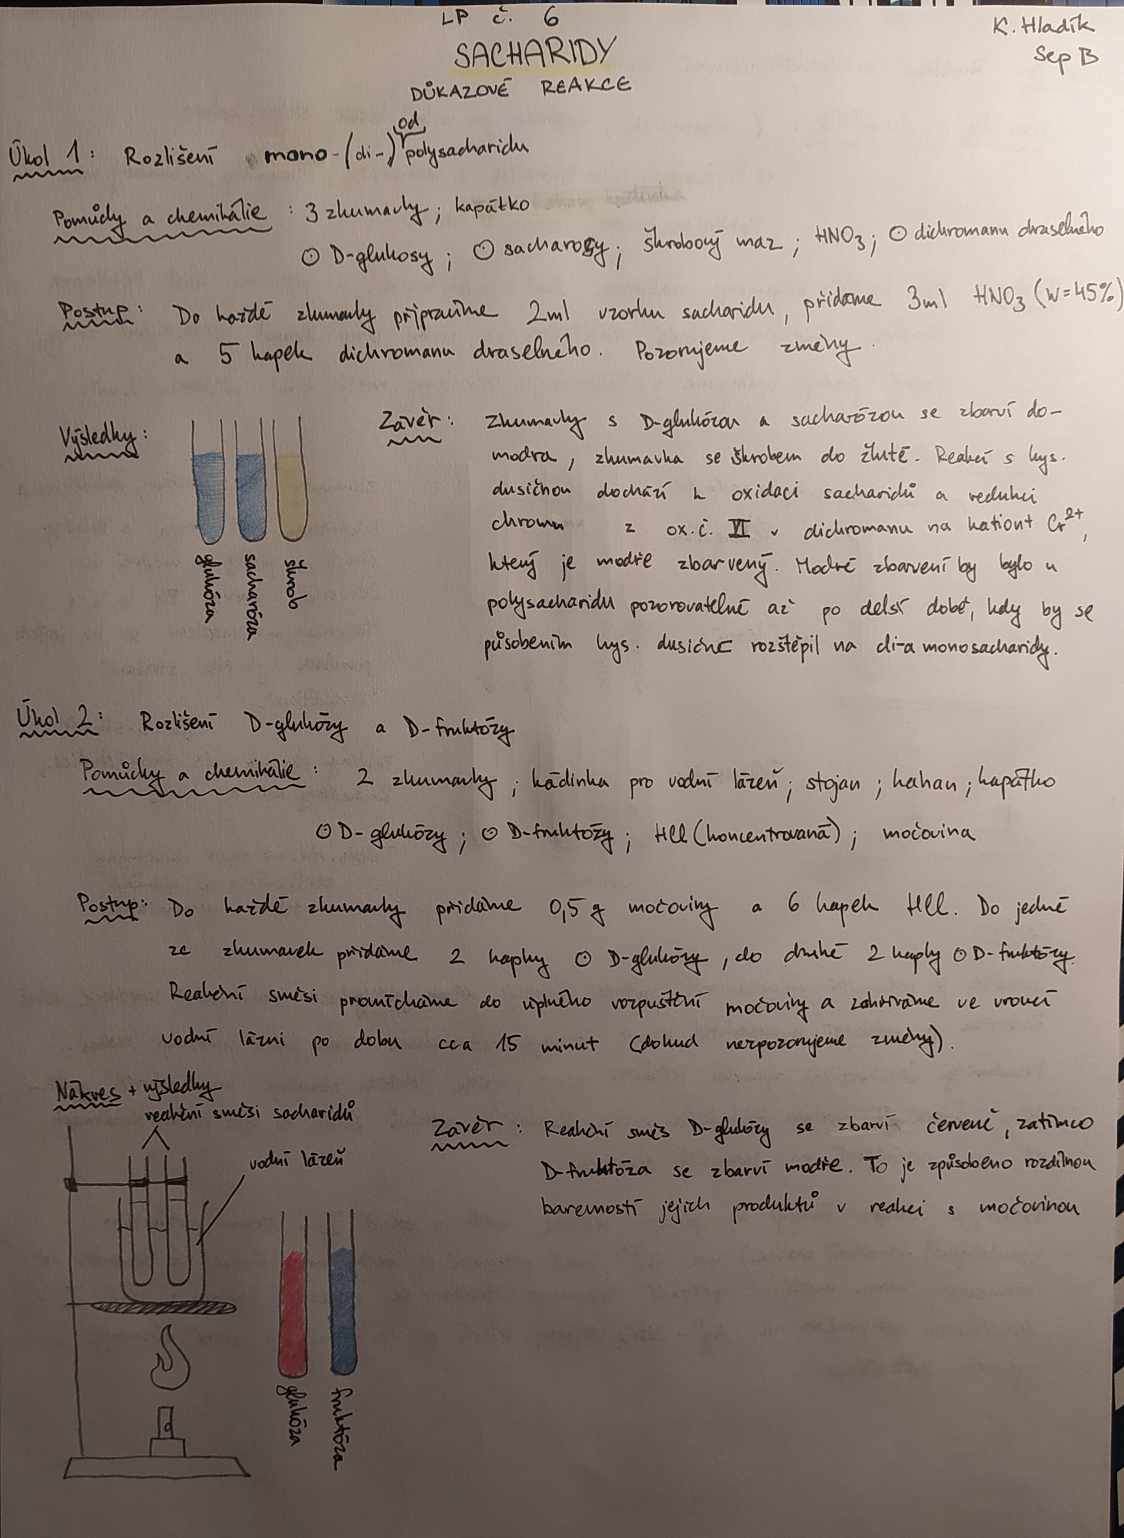 LP č. 6
K. Hladík
Sep B
SACHARIDY
DŮKAZOVÉ REAKCE
Úkol 1: Rozlišení mono-(di-) od polysacharidu
Pomůcky a chemikálie: 3 zkumavky; kapátko
⊙ D-glukosy; ⊙ sacharosy; škrobový maz; HNO3; ⊙ dichromanu draselného
Postup: Do každé zkumavky připravíme 2ml vzorku sacharidu, přidáme 3ml HNO3 (w=45%)
a 5 kapek dichromanu draselného. Pozorujeme změny.
Výsledky:
glukóza
sacharóza
škrob
Závěr: Zkumavky s D-glukózou a sacharózou se zbarví do-
modra, zkumavka se škrobem do žluté. Reakcí s kys.
dusičnou dochází k oxidaci sacharidů a redukci
chromu z ox.č. VI v dichromanu na kationt Cr2+,
který je modře zbarvený. Modré zbarvení by bylo u
polysacharidu pozorovatelné až po delší době, kdy by se
působením kys. dusičné rozštěpil na di-a monosacharidy.
Úkol 2: Rozlišení D-glukózy a D-fruktózy
Pomůcky a chemikálie: 2 zkumavky; kádinka pro vodní lázeň; stojan; kahan; kapátko
⊙ D-glukózy; ⊙ D-fruktózy; HCl (koncentrovaná); močovina
Postup: Do každé zkumavky přidáme 0,5 g močoviny a 6 kapek HCl. Do jedné
ze zkumavek přidáme 2 kapky ⊙ D-glukózy, do druhé 2 kapky ⊙ D-fruktózy.
Reakční směsi promícháme do úplného rozpuštění močoviny a zahříváme ve vroucí
vodní lázni po dobu cca 15 minut (dokud nezpozorujeme změny).
Nákres + výsledky
reakční směsi sacharidů
vodní lázeň
glukóza
fruktóza
Závěr: Reakční směs D-glukózy se zbarví červeně, zatímco
D-fruktóza se zbarví modře. To je způsobeno rozdílnou
barevností jejich produktů v reakci s močovinou